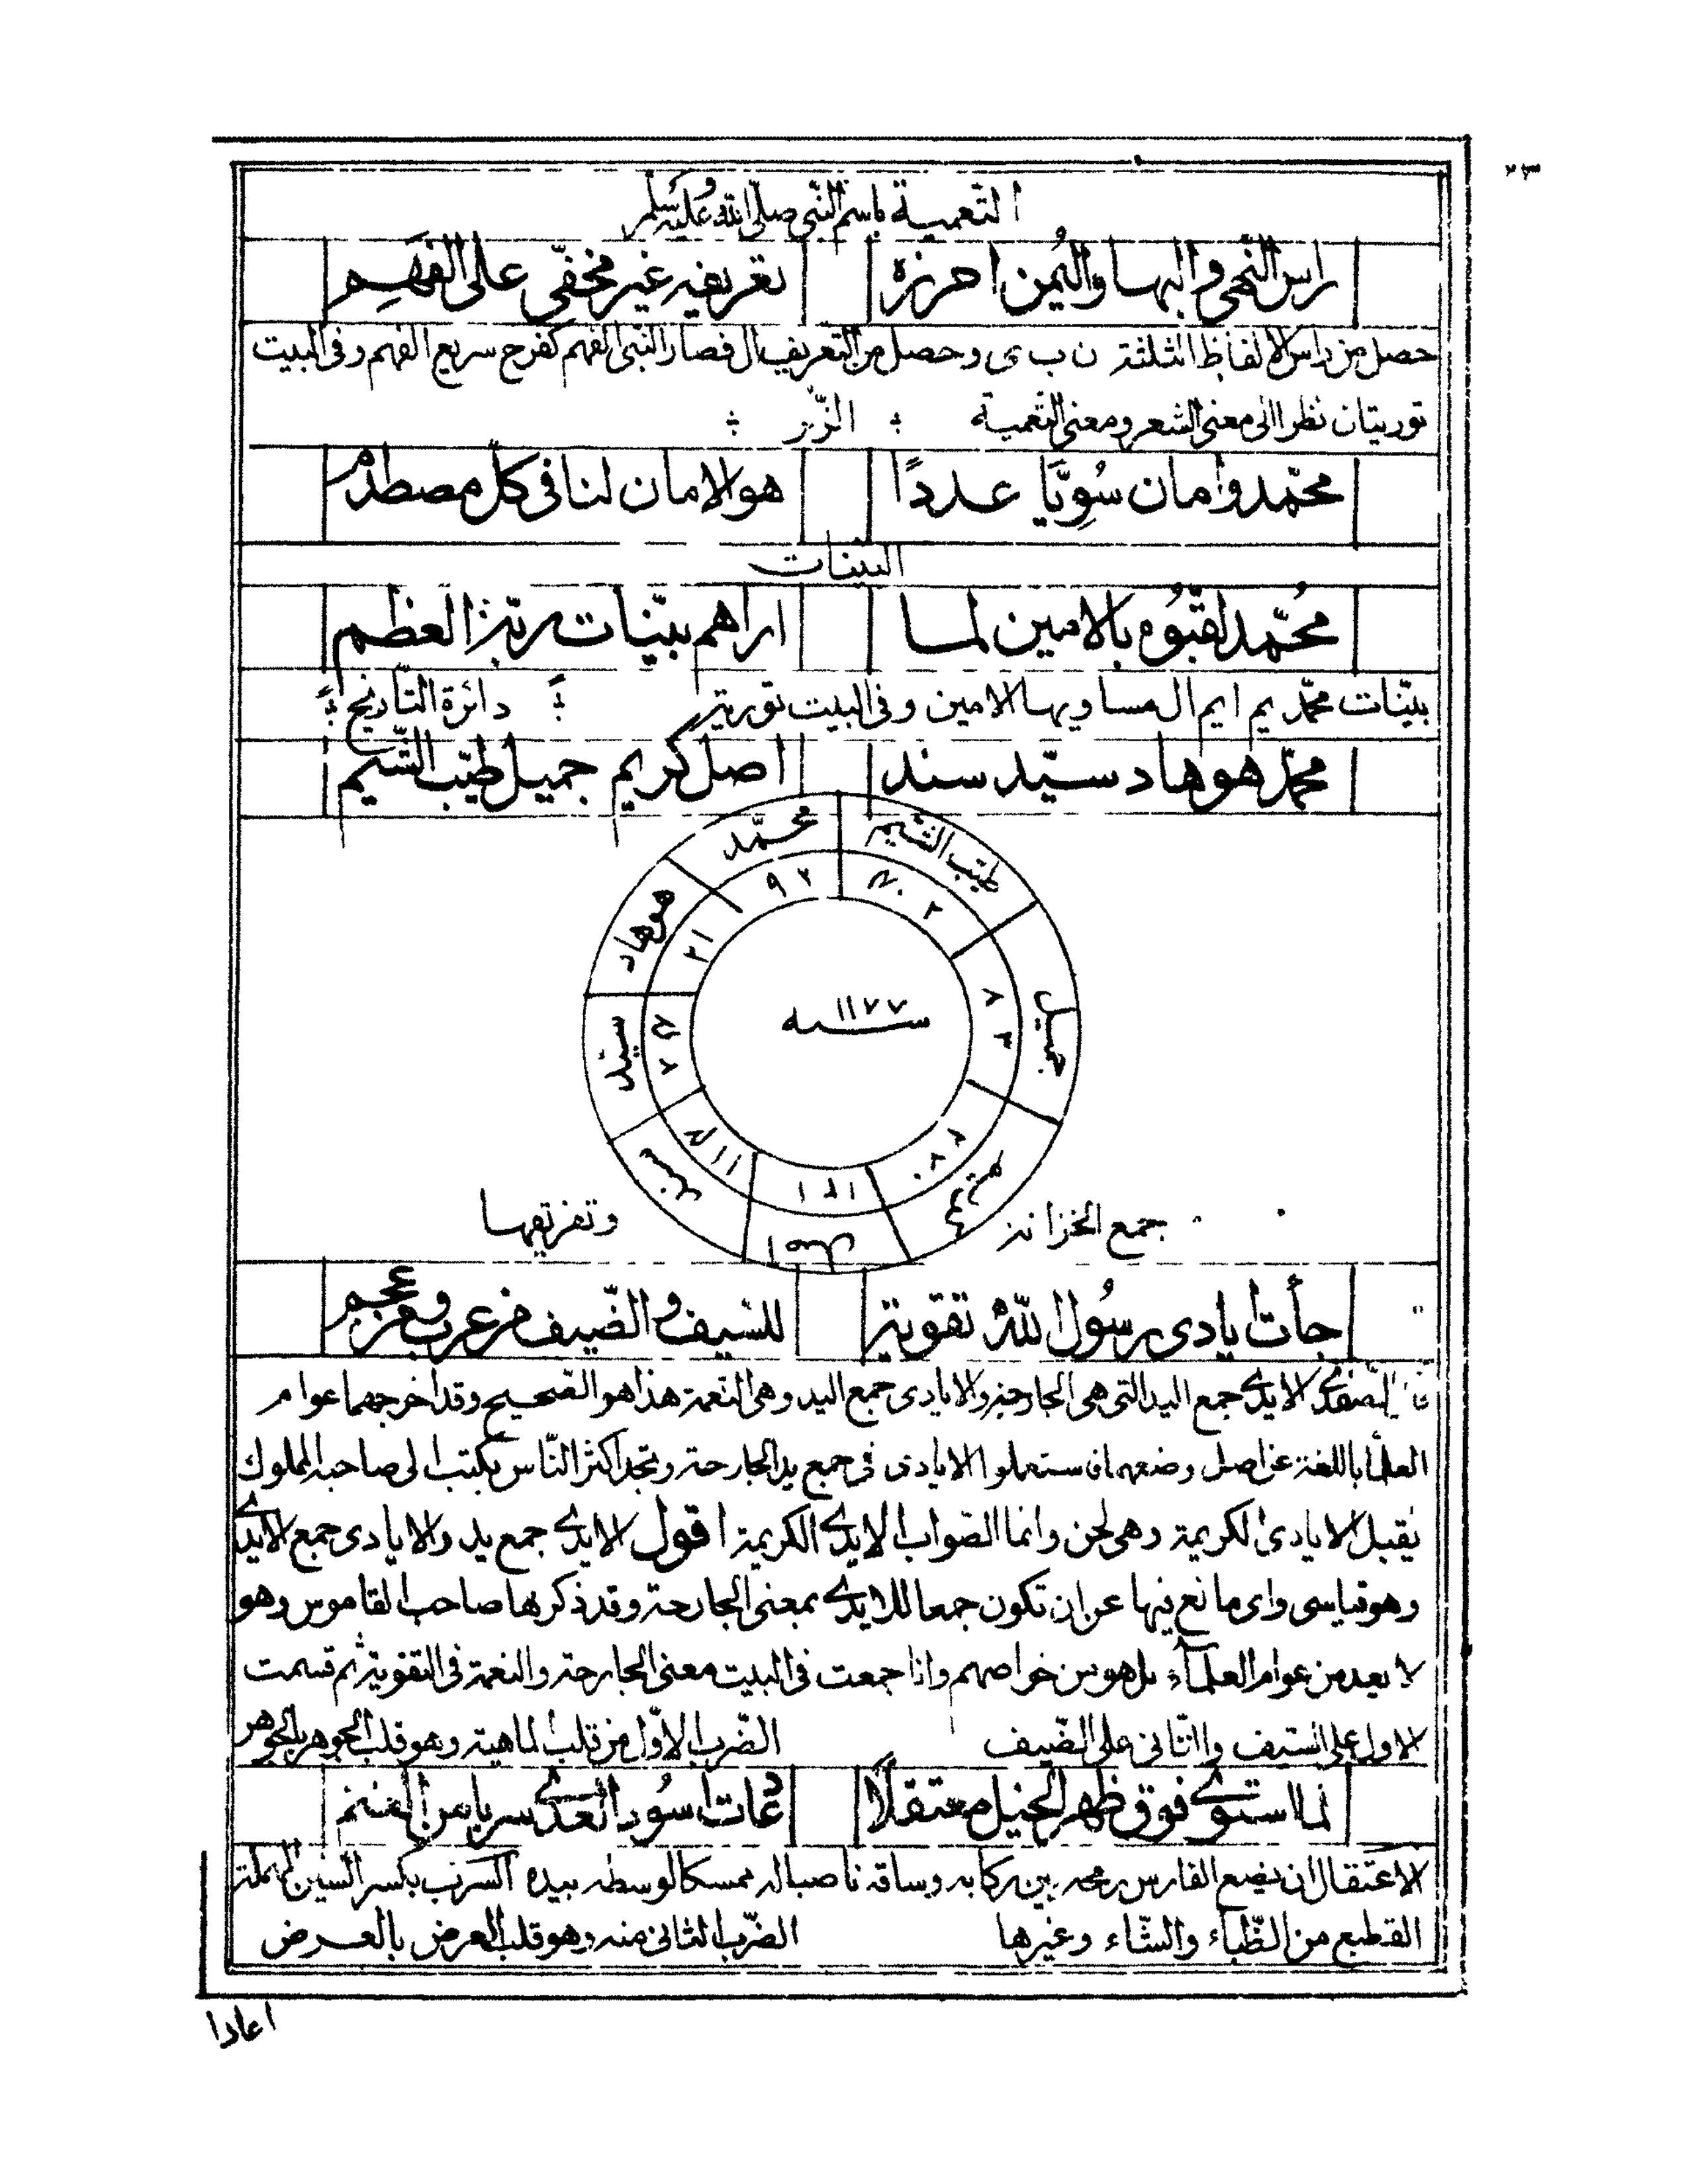 ٢٣
التعمية باسم النبي صلى الله عليه وسلم
راس النهى والبها واليمن احرزه تعريفه غير مخفي على الفهم
حصل من راس الالفاظ الثلثة ن ب ى وحصل من التعريف ال فصار النبي الفهم كفرح سريع الفهم وفى البيت
توريتان نظرا الى معنى الشعر ومعنى التعمية ؞ الزبر ؞
محمّد وامان سُوِّيَا عددًا هو الامان لنا فى كل مصطدم
البينات
مُحمّد لقّبُوه بالامين لما اراهم بينات ربّه العظم
بيّنات محمّد يم ا يم ال مساويها الامين وفى البيت تورية ؞ دائرة التاريخ ؞
محمّد هو هاد سيّد سند اصل كريم جميل طيّب الشّيم
محمّد
طيّب الشيم
جميل
كريم
اصل
سند
سيّد
هو هاد
٩٢
٨٣
٢٧٠
١٢١
١١٤
٧٤
٢١
سنه ١١٧٧
جمع الخزانة وتفريقها
جأت ايادى رسُول الله تقوية للسّيف والضّيف من عرب ومن عجم
الصفدى الايدى جمع اليد التى هى الجارحة والايادى جمع اليد وهى النعمة هذا هو الصحيح وقد اخرجهما عوام
العلماء باللغة عن اصل وضعهما فاستعملوا الايادى فى جمع يد الجارحة وتجد اكثر الناس يكتب الى صاحبه المملوك
يقبل الايادى الكريمة وهى لحن وانما الصواب الايدى الكريمة اقول الايدى جمع يد والايادى جمع الايدى
وهو قياسى واى مانع فيها عن ان تكون جمعا للايدى بمعنى الجارحة وقد ذكرها صاحب القاموس وهو
لا يعد من عوام العلماء بل هو من خواصهم وانا جمعت فى البيت معنى الجارحة والنعمة فى التقوية ثم قسمت
الاول على السيف والثانى على الضيف الضّرب الاوّل من قلب الماهية وهو قلب الجوهر بالجوهر
لما استوى فوق ظهر الخيل معتقلًا عات اسُودا تعدّى سربا من الغنم
الاعتقال ان يضع الفارس رمحه بين ركابه وساقه ناصبا له ممسكا لوسطه بيده السرب بكسر السين المهملة
القطيع من الظّباء والشّاء وغيرها الضّرب الثانى منه وهو قلب العرض بالعرض
اعادا